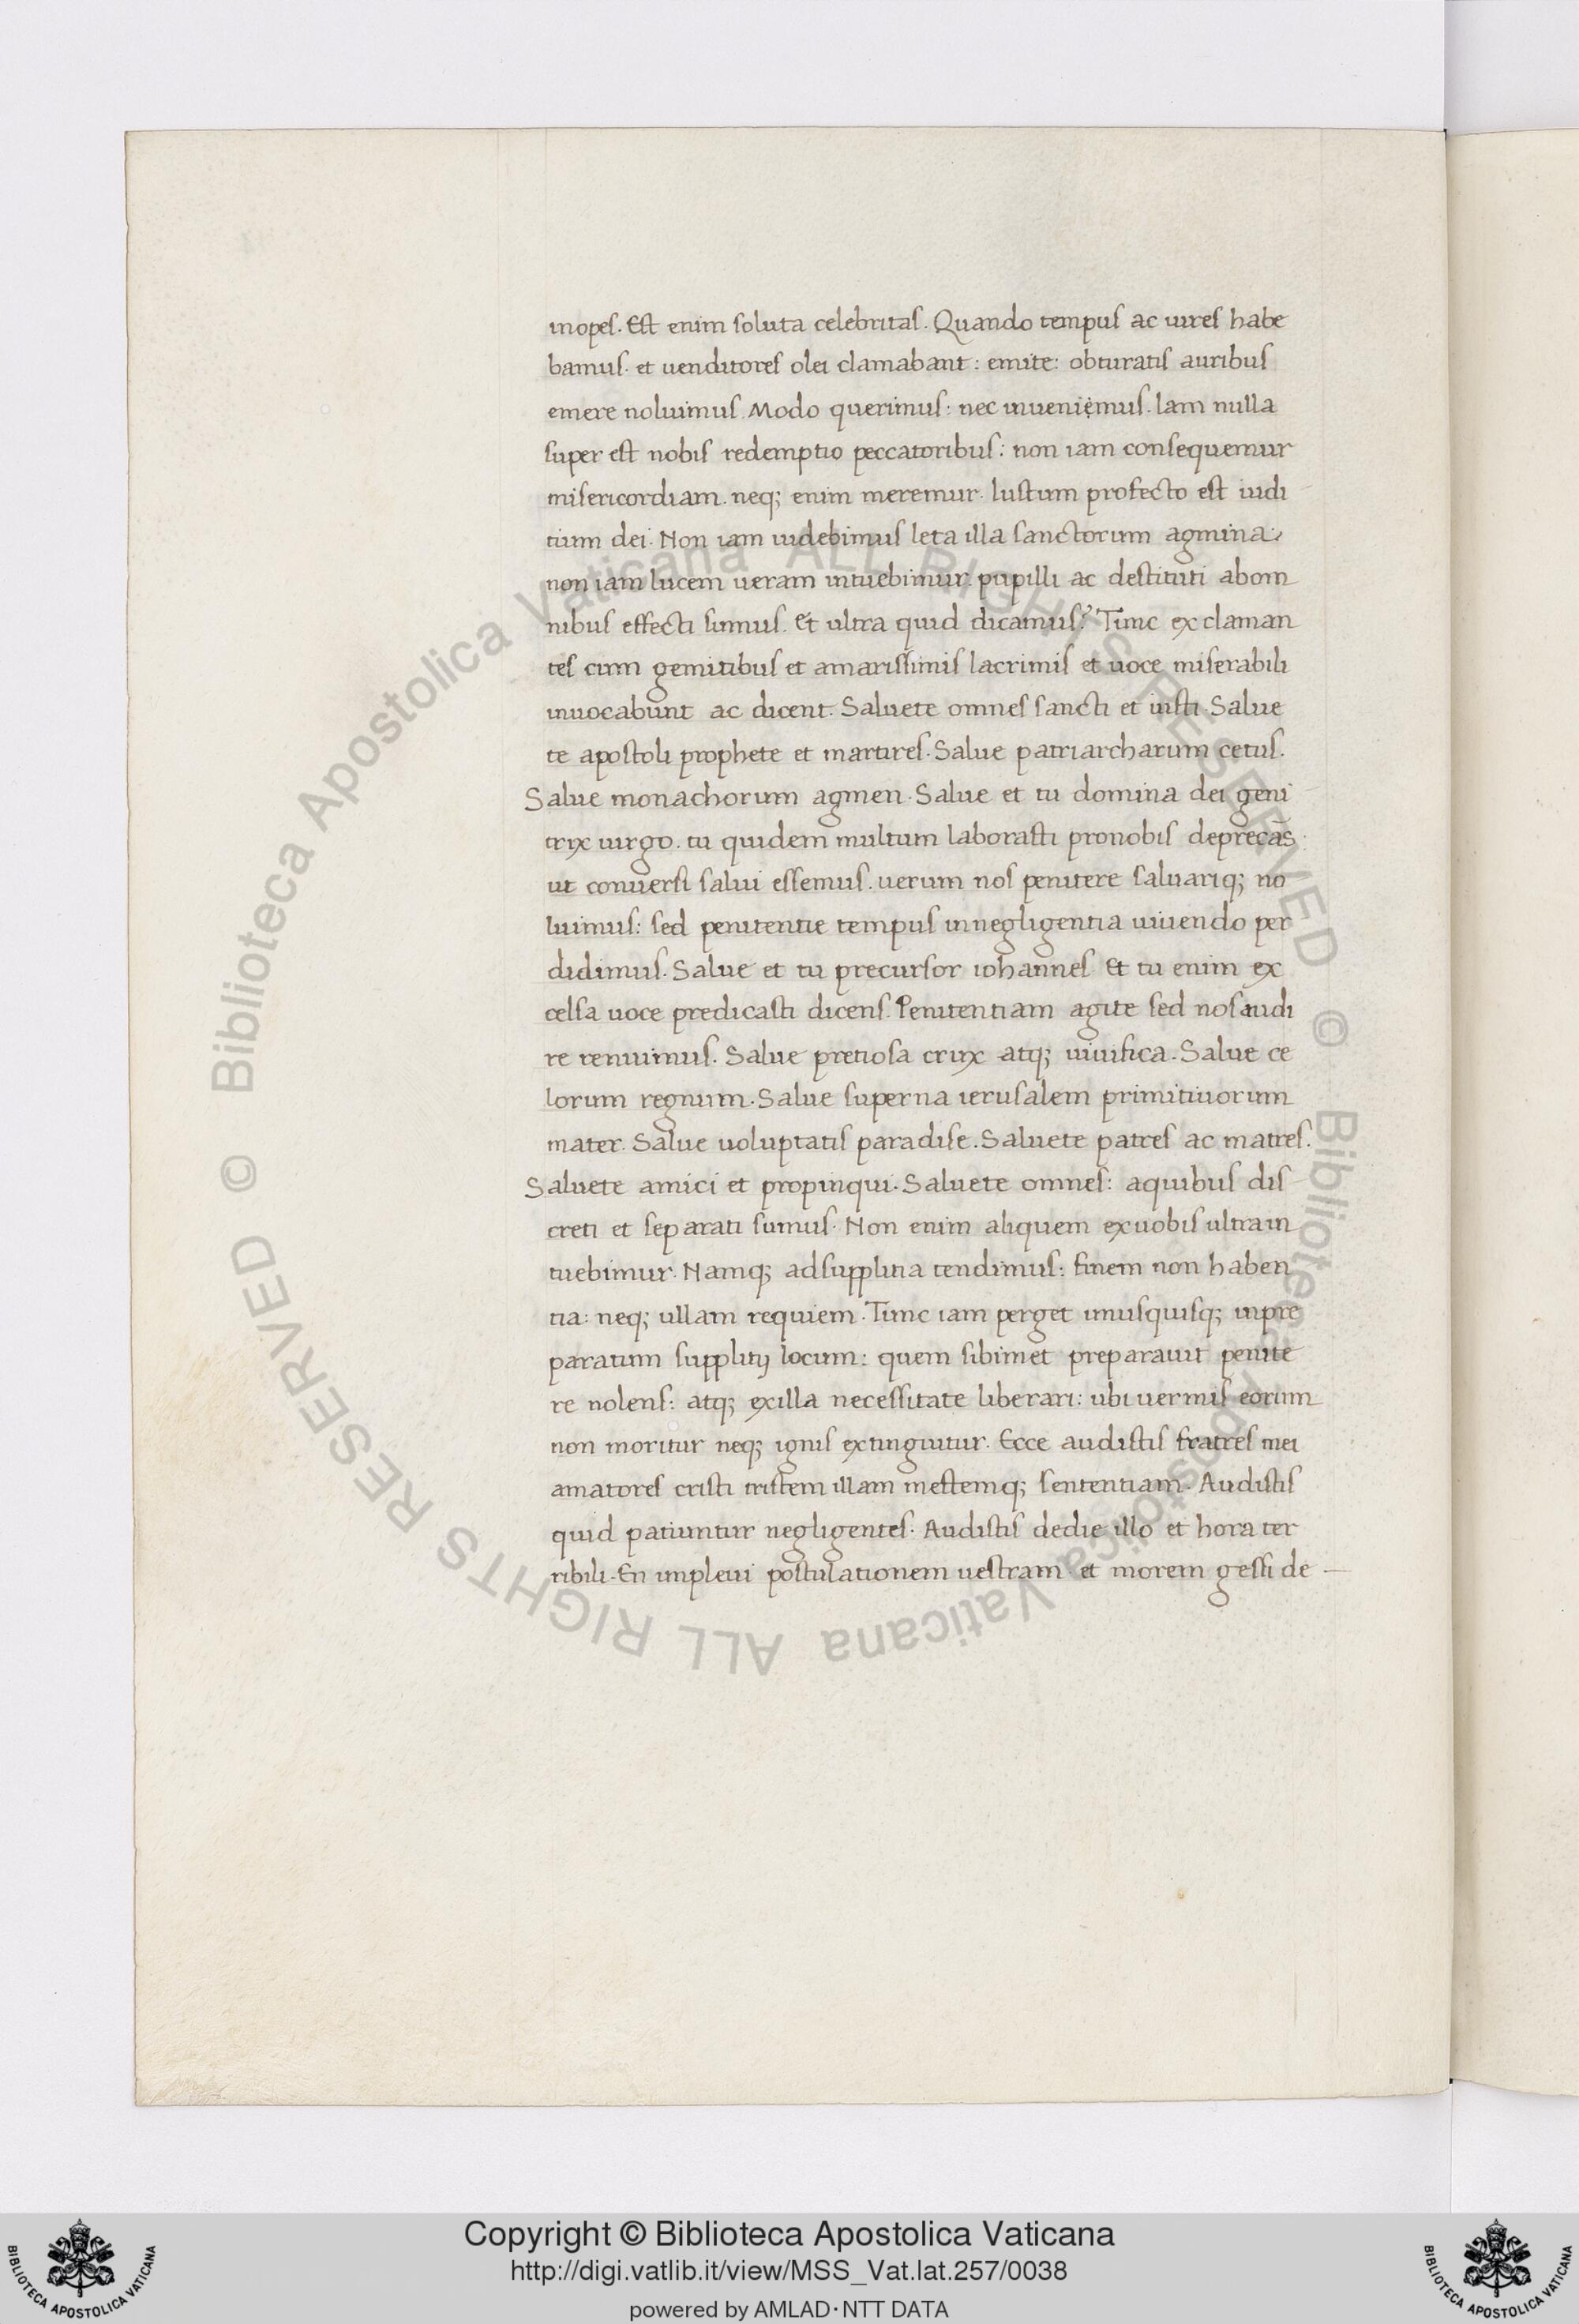 inopes. Est enim soluta celebritas. Quando tempus ac uires habe
bamus. et uenditores olei clamabant: emite: obturatis auribus
emere noluimus. Modo querimus: nec inueniemus. Iam nulla
super est nobis redemptio peccatoribus: non iam consequemur
misericordiam. neq; enim meremur. Iustum profecto est iudi
tium dei. Non iam uidebimus leta illa sanctorum agmina:
non iam lucem ueram intuebimur. pupilli ac destituti abom
nibus effecti sumus. Et ultra quid dicamus? Tunc exclaman
tes cum gemitibus et amarissimis lacrimis et uoce miserabili
inuocabunt ac dicent. Saluete omnes sancti et iusti. Salue
te apostoli prophete et martires. Salue patriarcharum cetus.
Salue monachorum agmen. Salue et tu domina dei geni
trix uirgo. tu quidem multum laborasti pronobis deprecās
ut conuersi salui essemus. uerum nos penitere saluariq; no
luimus: sed penitentie tempus innegligentia uiuendo per
didimus. Salue et tu precursor iohannes. Et tu enim ex
celsa uoce predicasti dicens. Penitentiam agite sed nos audi
re renuimus. Salue pretiosa crux atq; uiuifica. Salue ce
lorum regnum. Salue superna ierusalem primitiuorum
mater. Salue uoluptatis paradise. Saluete patres ac matres.
Saluete amici et propinqui. Saluete omnes: aquibus dis
creti et separati sumus. Non enim aliquem exuobis ultra in
tuebimur. Namq; adsupplitia tendimus: finem non haben
tia: neq; ullam requiem. Tunc iam perget unusquisq; inpre
paratum supplitij locum: quem sibimet preparauit penite
re nolens: atq; exilla necessitate liberari: ubi uermis eorum
non moritur neq; ignis extinguitur. Ecce audistis fratres mei
amatores cristi tristem illam mestemq; sententiam. Audistis
quid patiuntur negligentes. Audistis dedie illo et hora ter
ribili. En impleui postulationem uestram et morem gessi de
© Biblioteca Apostolica Vaticana ALL RIGHTS RESERVED © Biblioteca Apostolica Vaticana ALL RIGHTS RESERVED
Copyright © Biblioteca Apostolica Vaticana
http://digi.vatlib.it/view/MSS_Vat.lat.257/0038
powered by AMLAD·NTT DATA
BIBLIOTECA APOSTOLICA VATICANA
BIBLIOTECA APOSTOLICA VATICANA